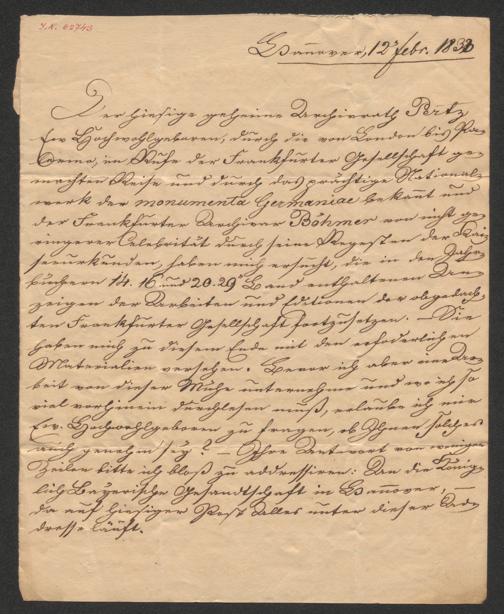 I.N. 62743
Hannover, 12ᵗ febr. 1833
Der hiesige geheime Archivrath Pertz
Ew Hochwohlgeboren, durch die von London bis Pa-
lermo, im Rufe der Frankfurter Gesellschaft ge-
machten Reise und durch das prächtige National-
werk der monumenta Germaniae bekannt und
der Frankfurter Archivar Böhmer von nicht ge-
ringerer Celebrität durch seine Regesten der Kai-
serurkunden, haben mich ersucht, die in den Jahr-
büchern 14. 16 und 20. 29 Band enthaltenen An-
zeigen der Arbeiten und Editionen der obgedach-
ten Frankfurter Gesellschaft fortzusetzen. — Sie
haben mich zu diesem Ende mit den erforderlichen
Materialien versehen. Bevor ich aber eine Ar-
beit von dieser Mühe unternehme und wo ich so
viel vorhinein durchlesen muß, erlaube ich mir
Ew. Hochwohlgeboren zu fragen, ob Ihnen solches
auch genehm sey? — Ihre Antwort von wenigen
Zeilen bitte ich bloß zu addressiren: An die König-
lich Bayerische Gesandtschaft in Hannover, —
da auf hiesiger Post Alles unter dieser Ad-
dresse läuft.